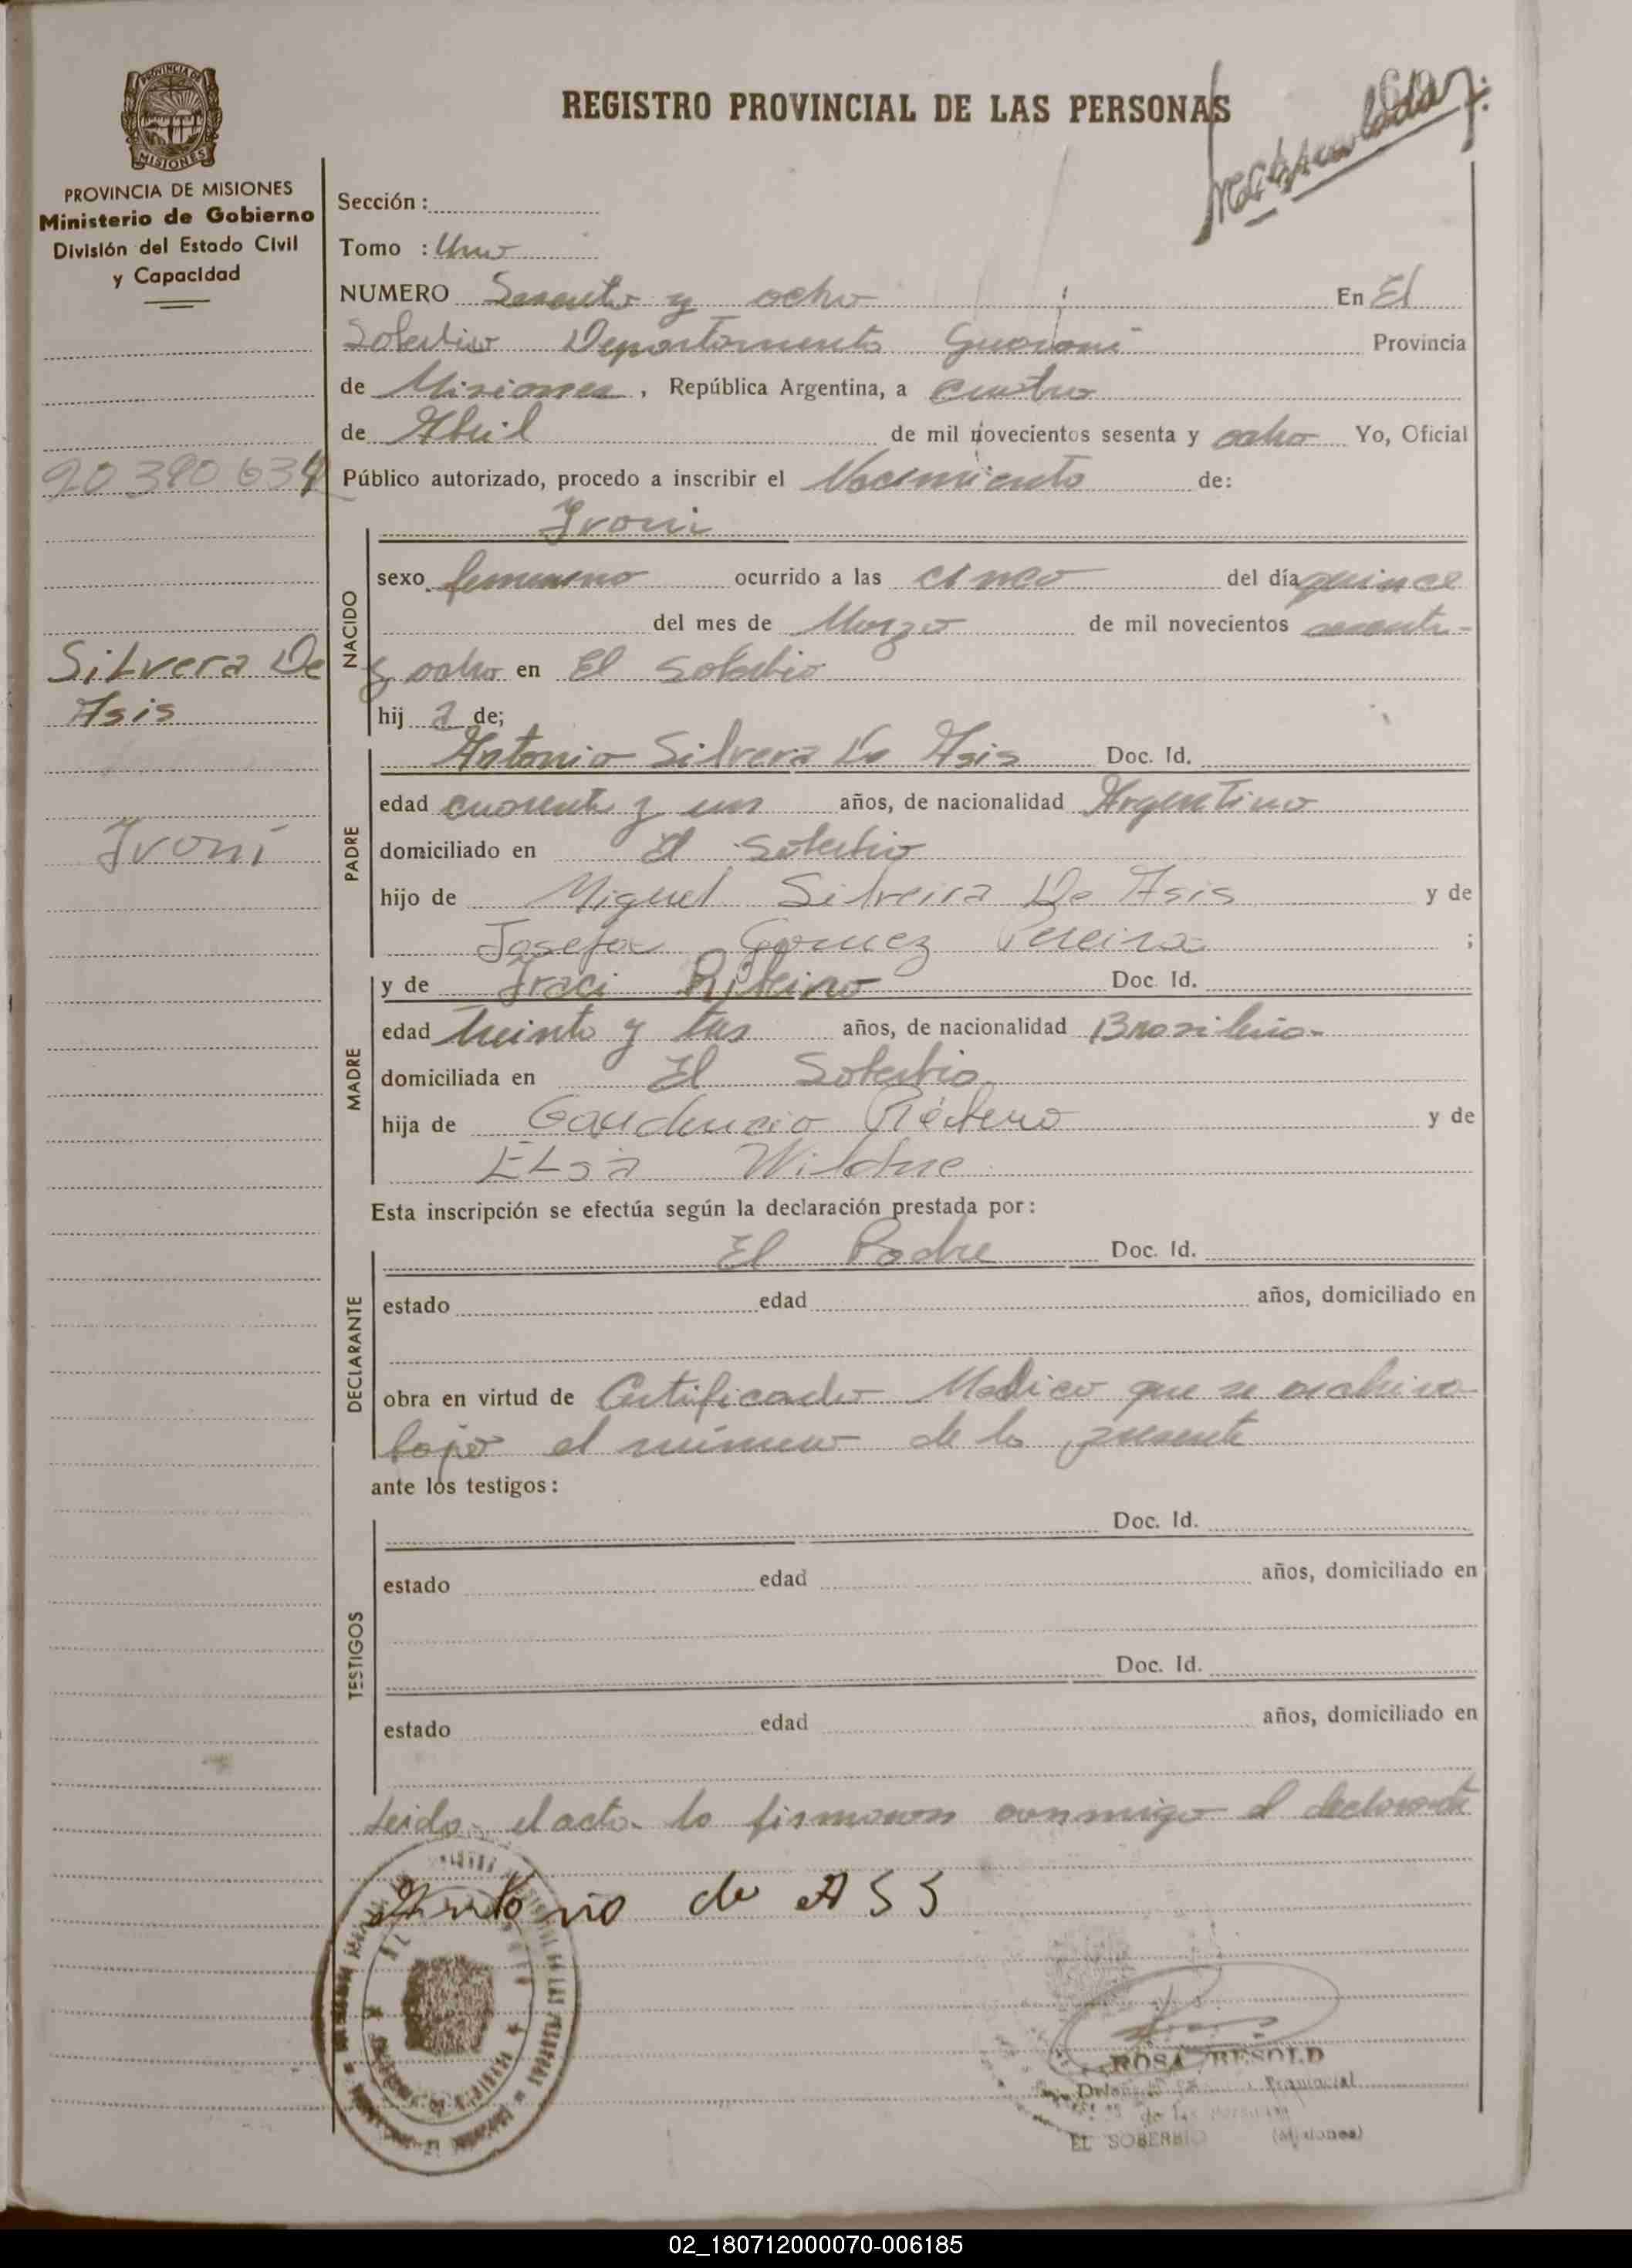 REGISTRO PROVINCIAL DE LAS PERSONAS
PROVINCIA DE
MISIONES
PROVINCIA DE MISIONES
Ministerio de Gobierno
División del Estado Civil
y Capacidad
Sección :
Tomo : Uno
NUMERO Sesenta y ocho En El
Soberbio Departamento Guaraní Provincia
de Misiones, República Argentina, a cuatro
de Abril de mil novecientos sesenta y ocho Yo, Oficial
90 390 634
Público autorizado, procedo a inscribir el Nacimiento de:
Ivoni
NACIDO
sexo femenino ocurrido a las cinco del día quince
del mes de Marzo de mil novecientos sesenta
y ocho en El Soberbio
hij a de;
Silvera De
Asis
Ivoni
PADRE
Antonio Silvera De Asis Doc. Id.
edad cuarenta y un años, de nacionalidad Argentino
domiciliado en El Soberbio
hijo de Miguel Silveira De Asis y de
Josefa Gomez Pereira ;
MADRE
y de Iraci Ribeiro Doc. Id.
edad treinta y tres años, de nacionalidad Brasileña
domiciliada en El Soberbio
hija de Gaudencio y de
Elsa
Esta inscripción se efectúa según la declaración prestada por:
DECLARANTE
El Padre Doc. Id.
estado edad años, domiciliado en
obra en virtud de Certificado Medico que se archiva
bajo el número de la presente
ante los testigos:
TESTIGOS
Doc. Id.
estado edad años, domiciliado en
Doc. Id.
estado edad años, domiciliado en
Leida el acta la firmaron conmigo el declarante
Antonio de A S S
ROSA BESOLD
Provincial
de las
EL SOBERBIO (Misiones)
02_180712000070-006185